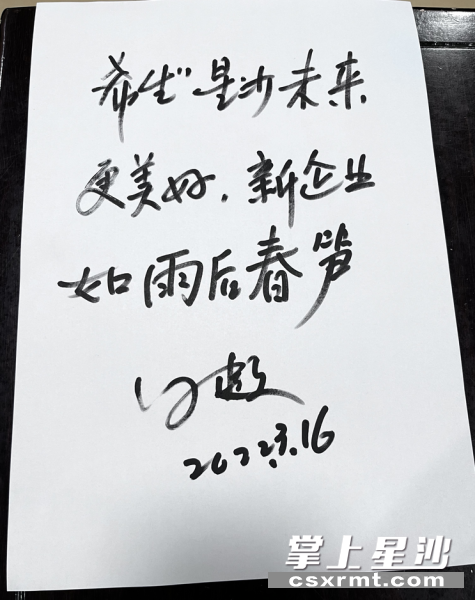 希望星沙未来
更美好,新企业
如雨后春笋
2022.3.16
掌上星沙
csxrmt.com